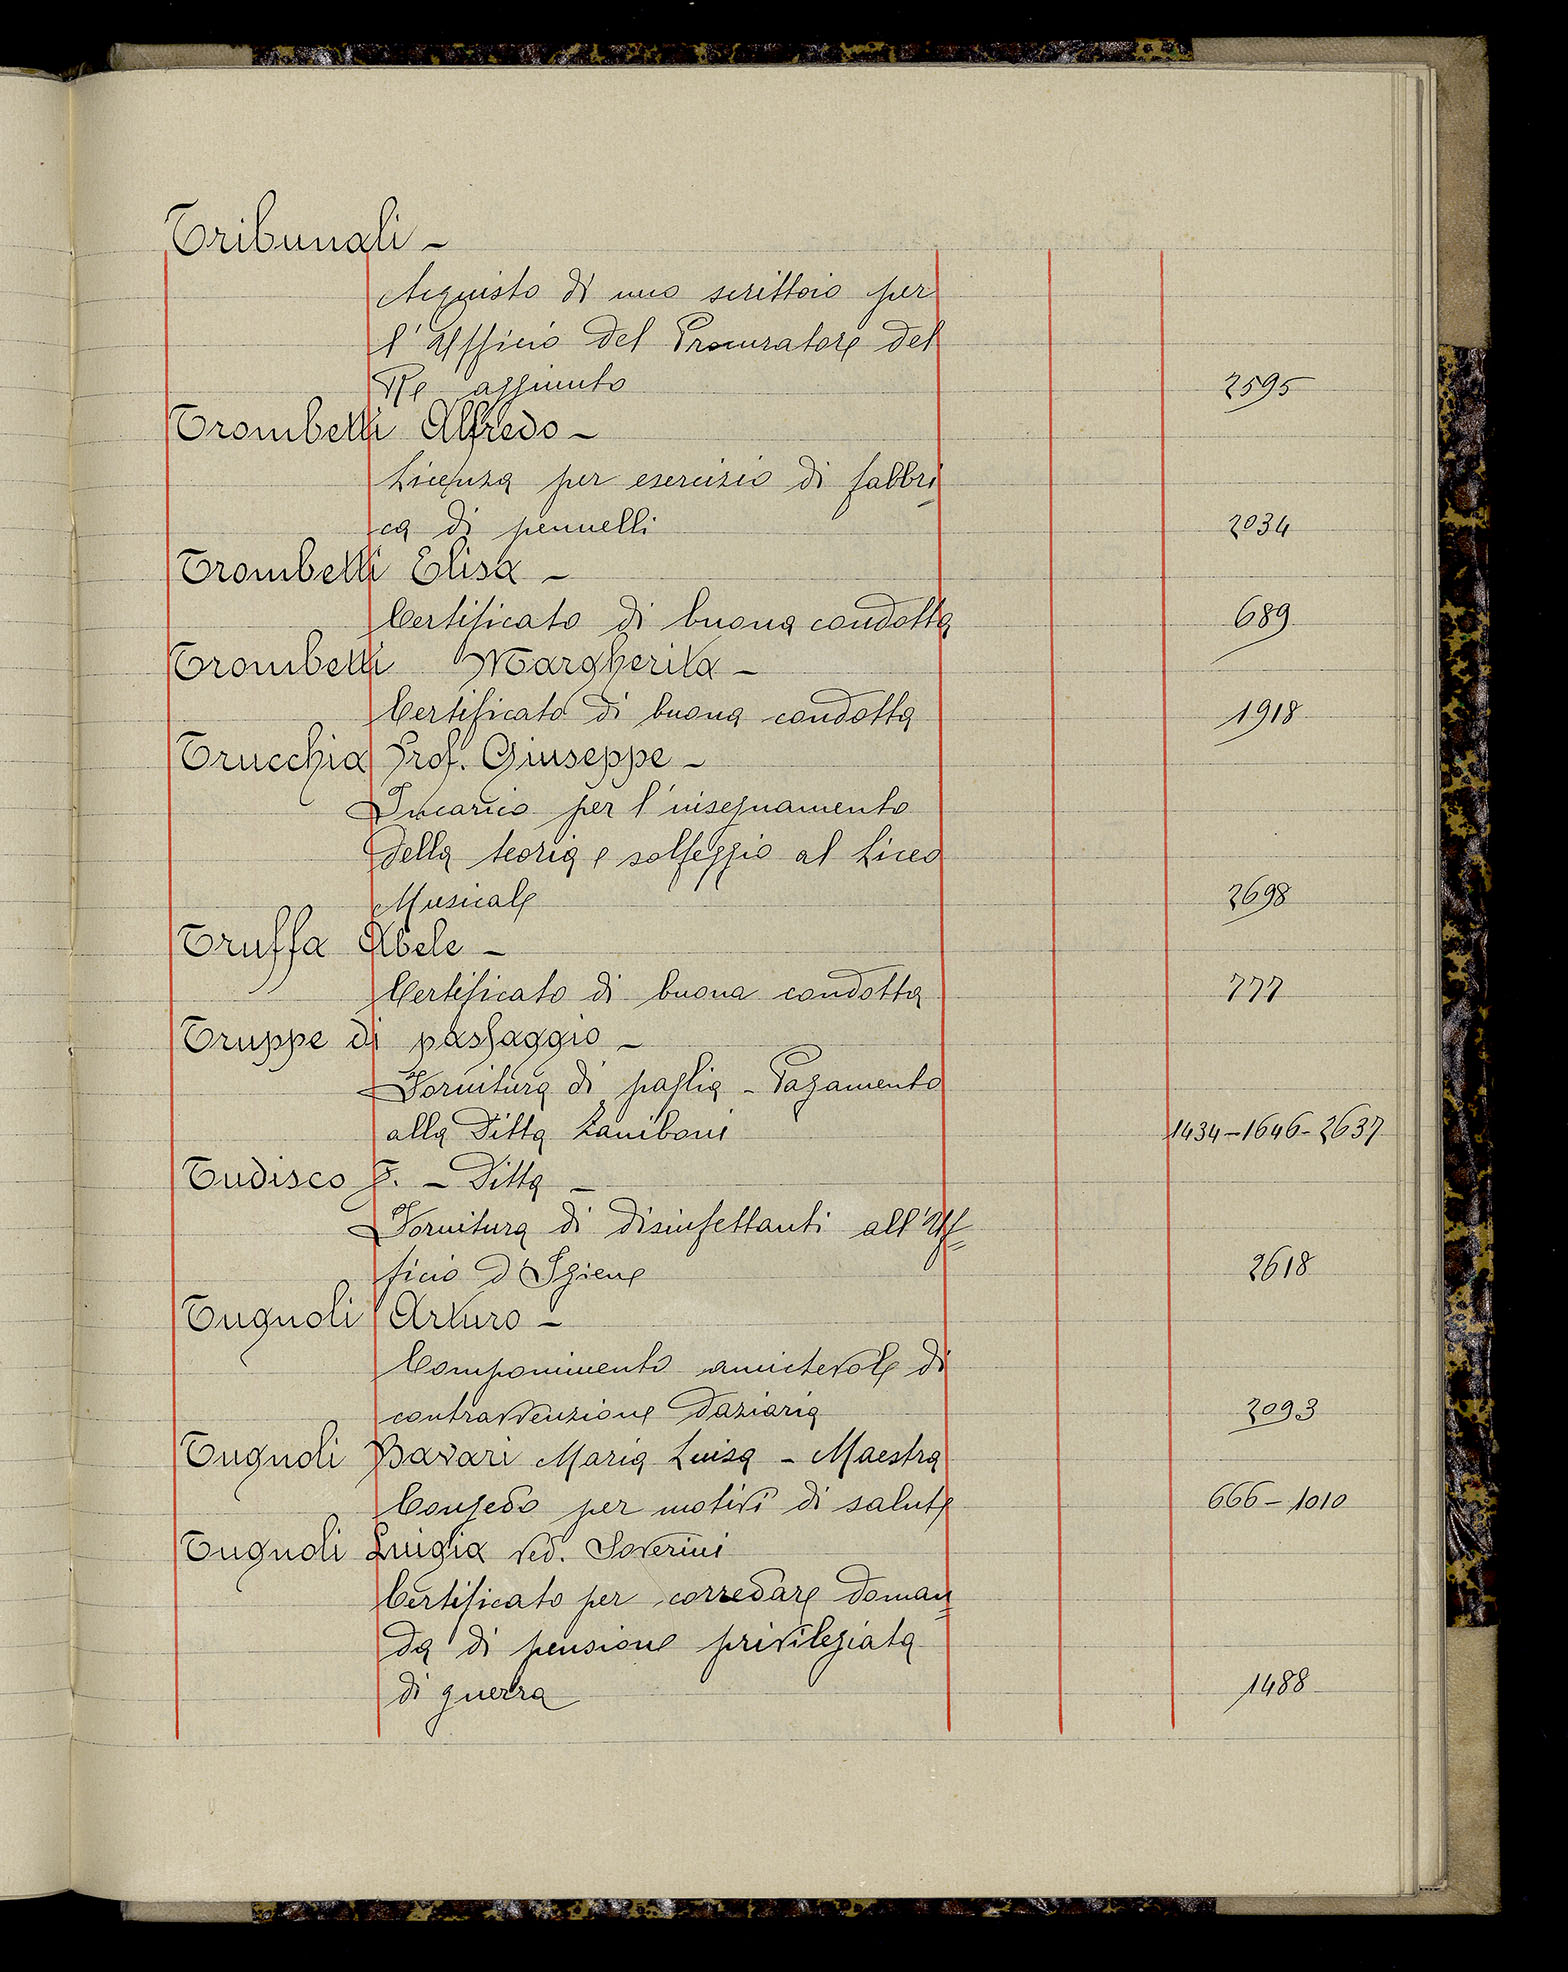 Tribunali -
Acquisto di uno scrittoio per
l'Ufficio del Procuratore del
Re aggiunto 2595
Trombetti Alfredo -
Licenza per esercizio di fabbri
ca di pennelli 2034
Trombetti Elisa -
Certificato di buona condotta 689
Trombetti Margherita -
Certificato di buona condotta 1918
Trucchia Prof. Giuseppe -
Incarico per l'insegnamento
della teoria e solfeggio al Liceo
Musicale 2698
Truffa Abele -
Certificato di buona condotta 777
Truppe di passaggio -
Fornitura di paglia - Pagamento
alla Ditta Zaniboni 1434-1646-2637
Tudisco F. - Ditta -
Fornitura di disinfettanti all'Uf=
ficio d'Igiene 2618
Tugnoli Arturo -
Componimento amichevole di
contravvenzione daziaria 2093
Tugnoli Bavari Maria Luisa - Maestra
Congedo per motivi di salute 666-1010
Tugnoli Luigia ved. Soverini
Certificato per corredare doman=
da di pensione privilegiata
di guerra 1488